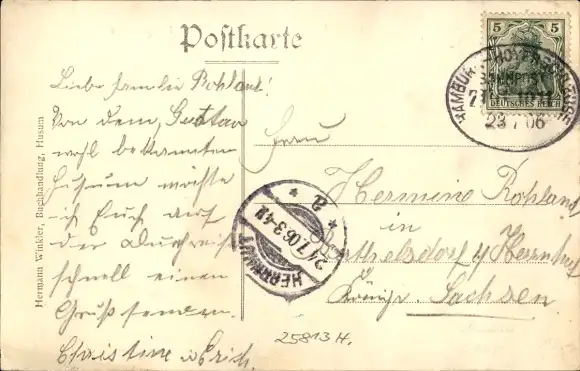 Postkarte
5 5
DEUTSCHES REICH
BAHNPOST
23 7 06
Liebe Familie Rohland!
Von dem, Gustav
wohl bekannten
Husum möchte
ich Euch auf
der Durchreise
schnell einen
Gruß senden.
Christine u Erich.
Hermann Winkler, Buchhandlung, Husum
HERRNHUT
24.7.06.3-4N
a
Frau
Hermine Rohland
in
Berthelsdorf b/ Herrnhut
Königr. Sachsen
25813 H.